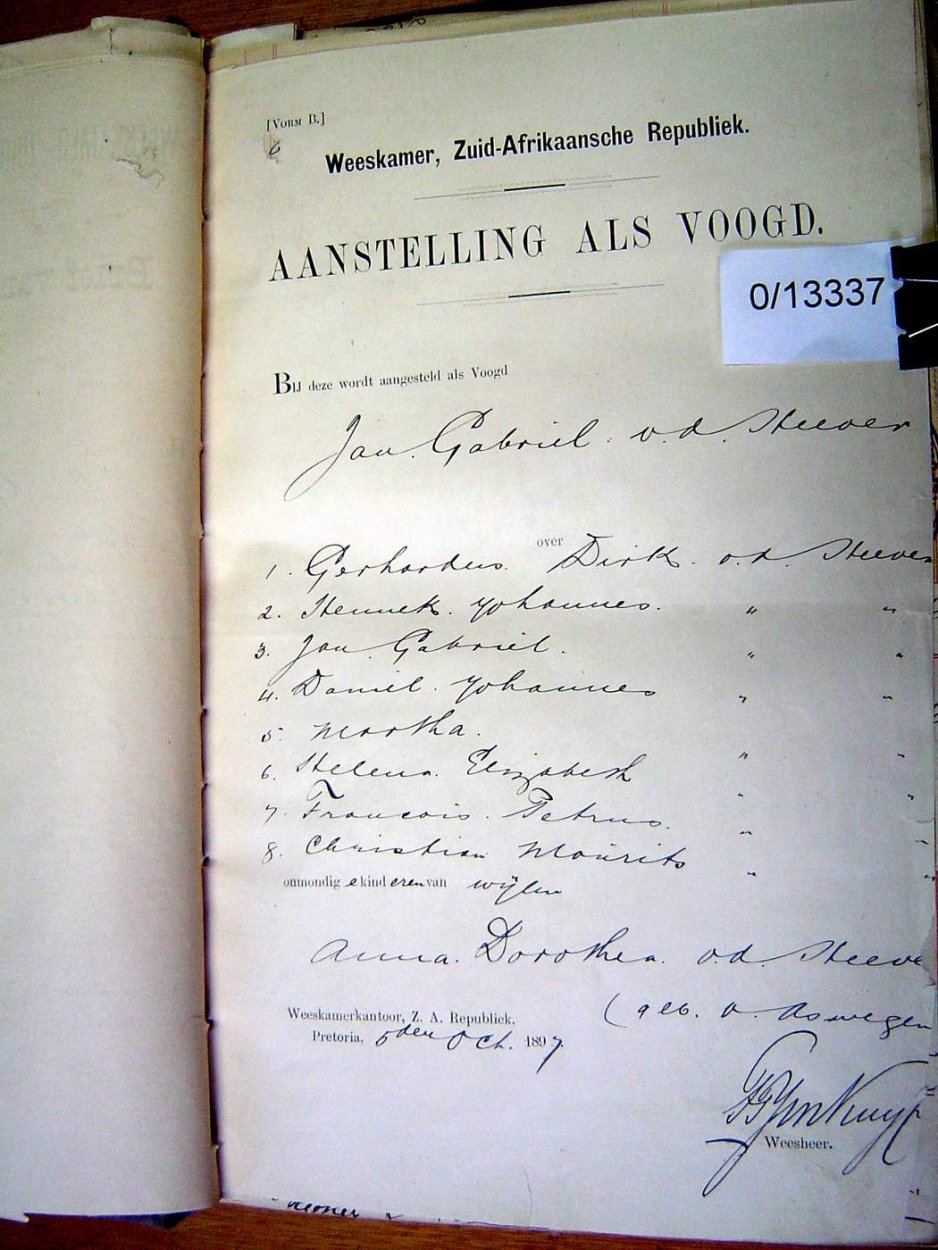 [VORM B.]
6
Weeskamer, Zuid-Afrikaansche Republiek.
AANSTELLING ALS VOOGD.
0/13337
BIJ deze wordt aangesteld als Voogd
Jan Gabriel v.d. Steever
over
1. Gerhardus Dirk v.d. Steever
2. Hennek Johannes. " "
3. Jan Gabriel. " "
4. Daniel Johannes " "
5. Martha. " "
6. Helena Elizabeth " "
7. Francois Petrus. " "
8. Christian Maurits " "
onmondig e kind eren van wijlen
Anna Dorothea v.d. Steeve
(geb. v. Aswegen
Weeskamerkantoor, Z. A. Republiek,
Pretoria, 5den Oct. 1897.
Weesheer.